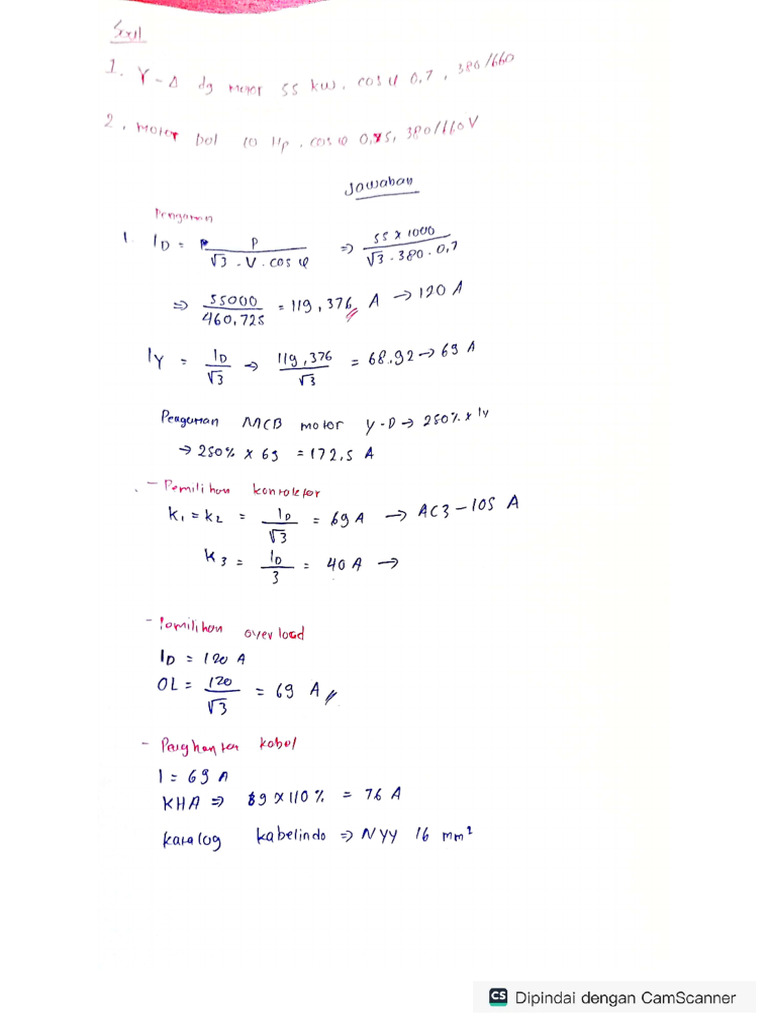 Soal
1. Y - Δ dg motor 55 kw. cos φ 0,7, 380/660
2. Motor bol 10 Hp. cos φ 0,85, 380/660 V
Jawaban
Pengaman
1. I_D = P / √3 . V . cos φ ⇒ 55 x 1000 / √3 . 380 . 0,7
⇒ 55000 / 460,725 = 119,376 A → 120 A
I_Y = I_D / √3 → 119,376 / √3 = 68.92 → 69 A
Pengaman MCB motor Y-D → 250% x Iy
→ 250% x 69 = 172,5 A
- Pemilihan kontaktor
K1 = K2 = I_D / √3 = 69 A → AC3 - 105 A
K3 = I_D / 3 = 40 A →
- Pemilihan overload
I_D = 120 A
OL = 120 / √3 = 69 A //
- Penghantar kabel
I = 69 A
KHA ⇒ 69 x 110 % = 76 A
katalog kabelindo ⇒ NYY 16 mm²
CS Dipindai dengan CamScanner